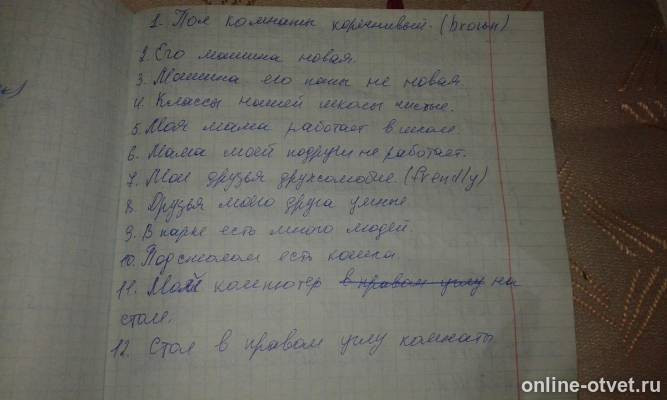 1. Пол комнаты коричневый. (brown)
2. Его машина новая.
3. Машина его папы не новая.
4. Классы нашей школы чистые.
5. Моя мама работает в школе.
6. Мама моей подруги не работает.
7. Мои друзья дружелюбные. (frendly)
8. Друзья моего друга умные.
9. В парке есть много людей.
10. Под столом есть кошка.
11. Мой компютер в правом углу на
столе.
12. Стол в правом углу комнаты
online-otvet.ru